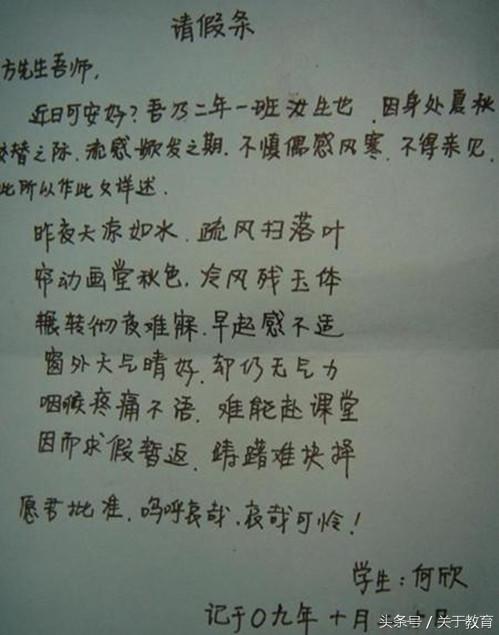 请假条
方先生吾师,
近日可安好?吾乃二年一班汝生也.因身处夏秋
交替之际.流感频发之期.不慎偶感风寒.不得来见.
此所以作此文详述.
昨夜天凉如水.疏风扫落叶
帘动画堂秋色.冷风残玉体
辗转彻夜难寐.早起感不适
窗外天气晴好.却仍无气力
咽喉疼痛不语.难能赴课堂
因而求假暂返.踌躇难抉择
愿君批准.呜呼哀哉.哀哉可怜!
学生:何欣
记于〇九年十月
头条号 / 关于教育